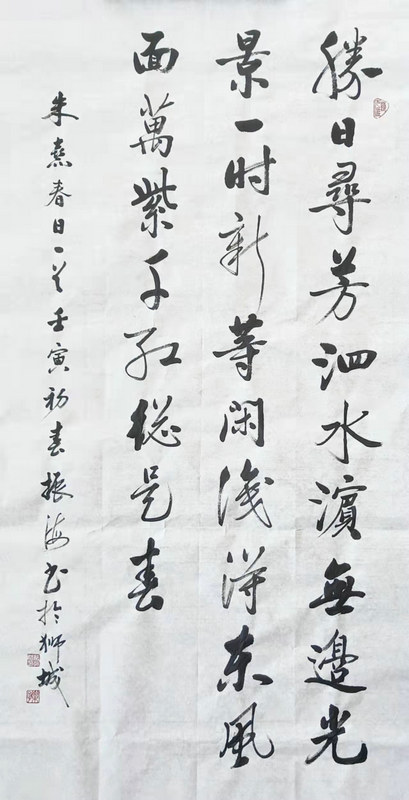 勝日尋芳泗水濱無邊光
景一时新等閑識得東風
面萬紫千紅總是春
朱熹春日一首壬寅初春振海书於狮城